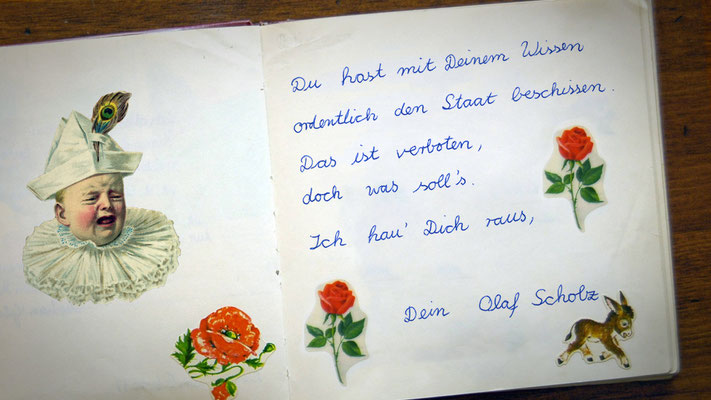 Du hast mit Deinem Wissen
ordentlich den Staat beschissen.
Das ist verboten,
doch was soll's.
Ich hau' Dich raus,
Dein Olaf Scholz